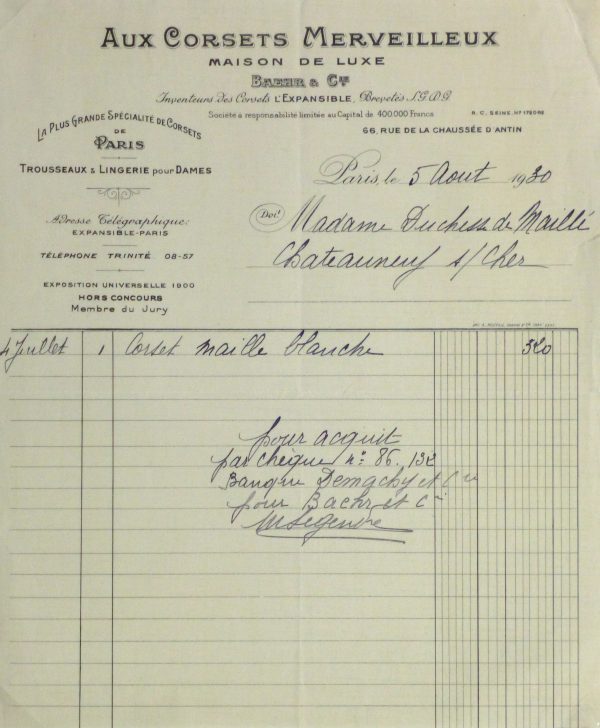 AUX CORSETS MERVEILLEUX
MAISON DE LUXE
BAEHR & Cie
Inventeurs des Corsets L'EXPANSIBLE, Brevetés S.G.D.G.
Société à responsabilité limitée au Capital de 400.000 Francs
R. C. SEINE, No 179098
66, RUE DE LA CHAUSSÉE D'ANTIN
LA PLUS GRANDE SPÉCIALITÉ DE CORSETS
DE
PARIS
TROUSSEAUX & LINGERIE pour DAMES
Adresse Télégraphique:
EXPANSIBLE-PARIS
TÉLÉPHONE TRINITÉ 08-57
EXPOSITION UNIVERSELLE 1900
HORS CONCOURS
Membre du Jury
Paris, le 5 Aout 1930
Doit
Madame Duchesse de Maillé
Chateauneuf s/ Cher
4 Juillet 1 Corset maille blanche 320
pour acquit
par chèque no 86.132
Banque Demachy et Cie
pour Baehr et Cie